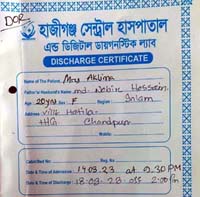 DOR
হাজীগঞ্জ সেন্ট্রাল হাসপাতাল
এন্ড ডিজিটাল ডায়াগনস্টিক ল্যাব
DISCHARGE CERTIFICATE
Name of The Patient: Mrs Aklima
Father's/Husband's Name: md. Nobir Hossain
Age: 20 yrs Sex: F
Address: vill: Hatila
Chandpur
Cabin/Bed No:
Reg. No:
Date & Time of Admission: 14.03.23 at 9.30 PM
Date & Time of Discharge: 18.03.23 at 2.00 Pm